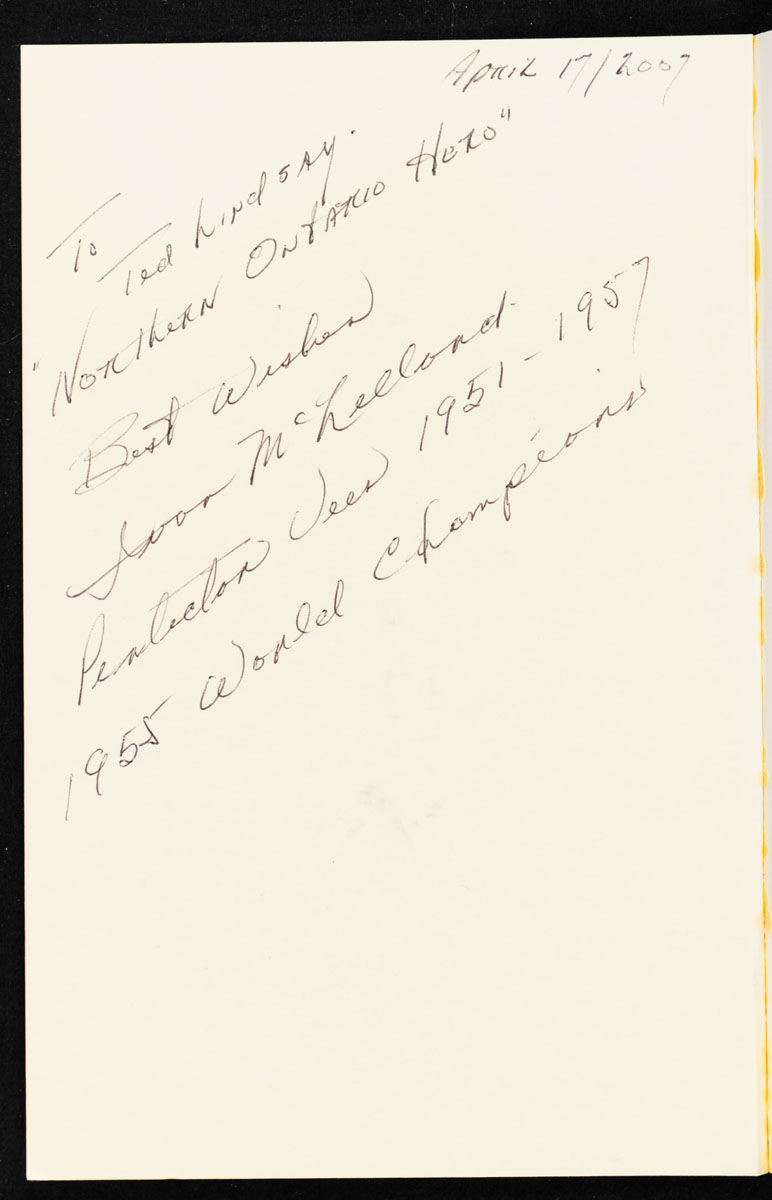 April 17/2007
To
Ted Lindsay.
"Northern Ontario Hero"
Best Wishes
Ivan McLelland
Penticton Vees 1951-1957
1955 World Champions